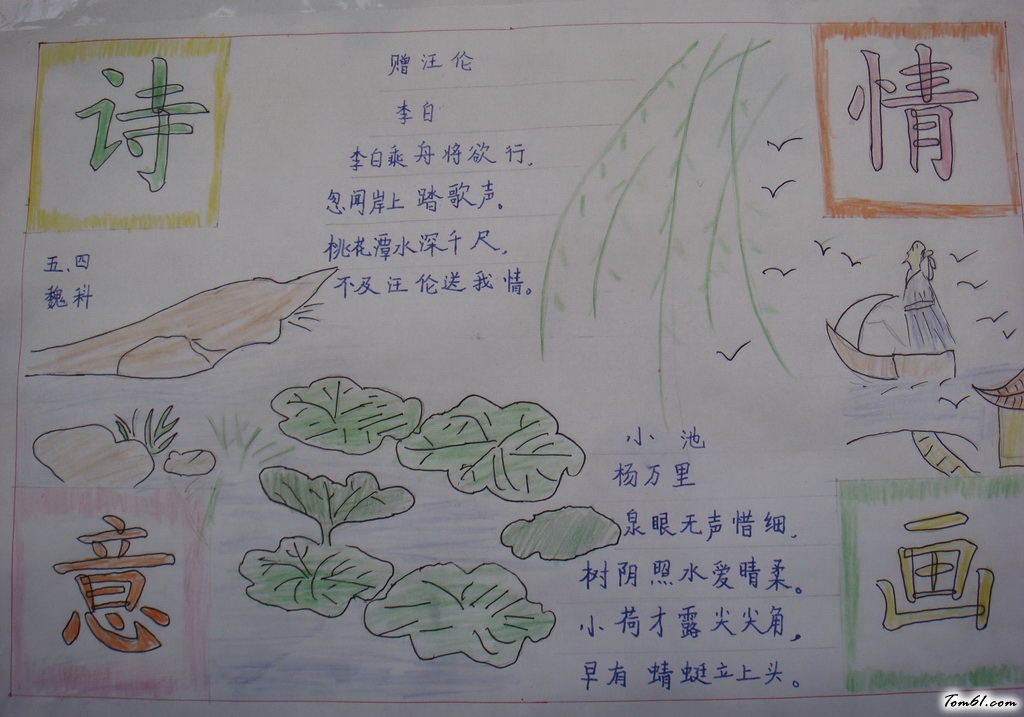 诗
情
赠汪伦
李白
李白乘舟将欲行,
忽闻岸上踏歌声。
桃花潭水深千尺,
不及汪伦送我情。
五、四
魏科
小池
杨万里
泉眼无声惜细,
树阴照水爱晴柔。
小荷才露尖尖角,
早有蜻蜓立上头。
意
画
Tom61.com